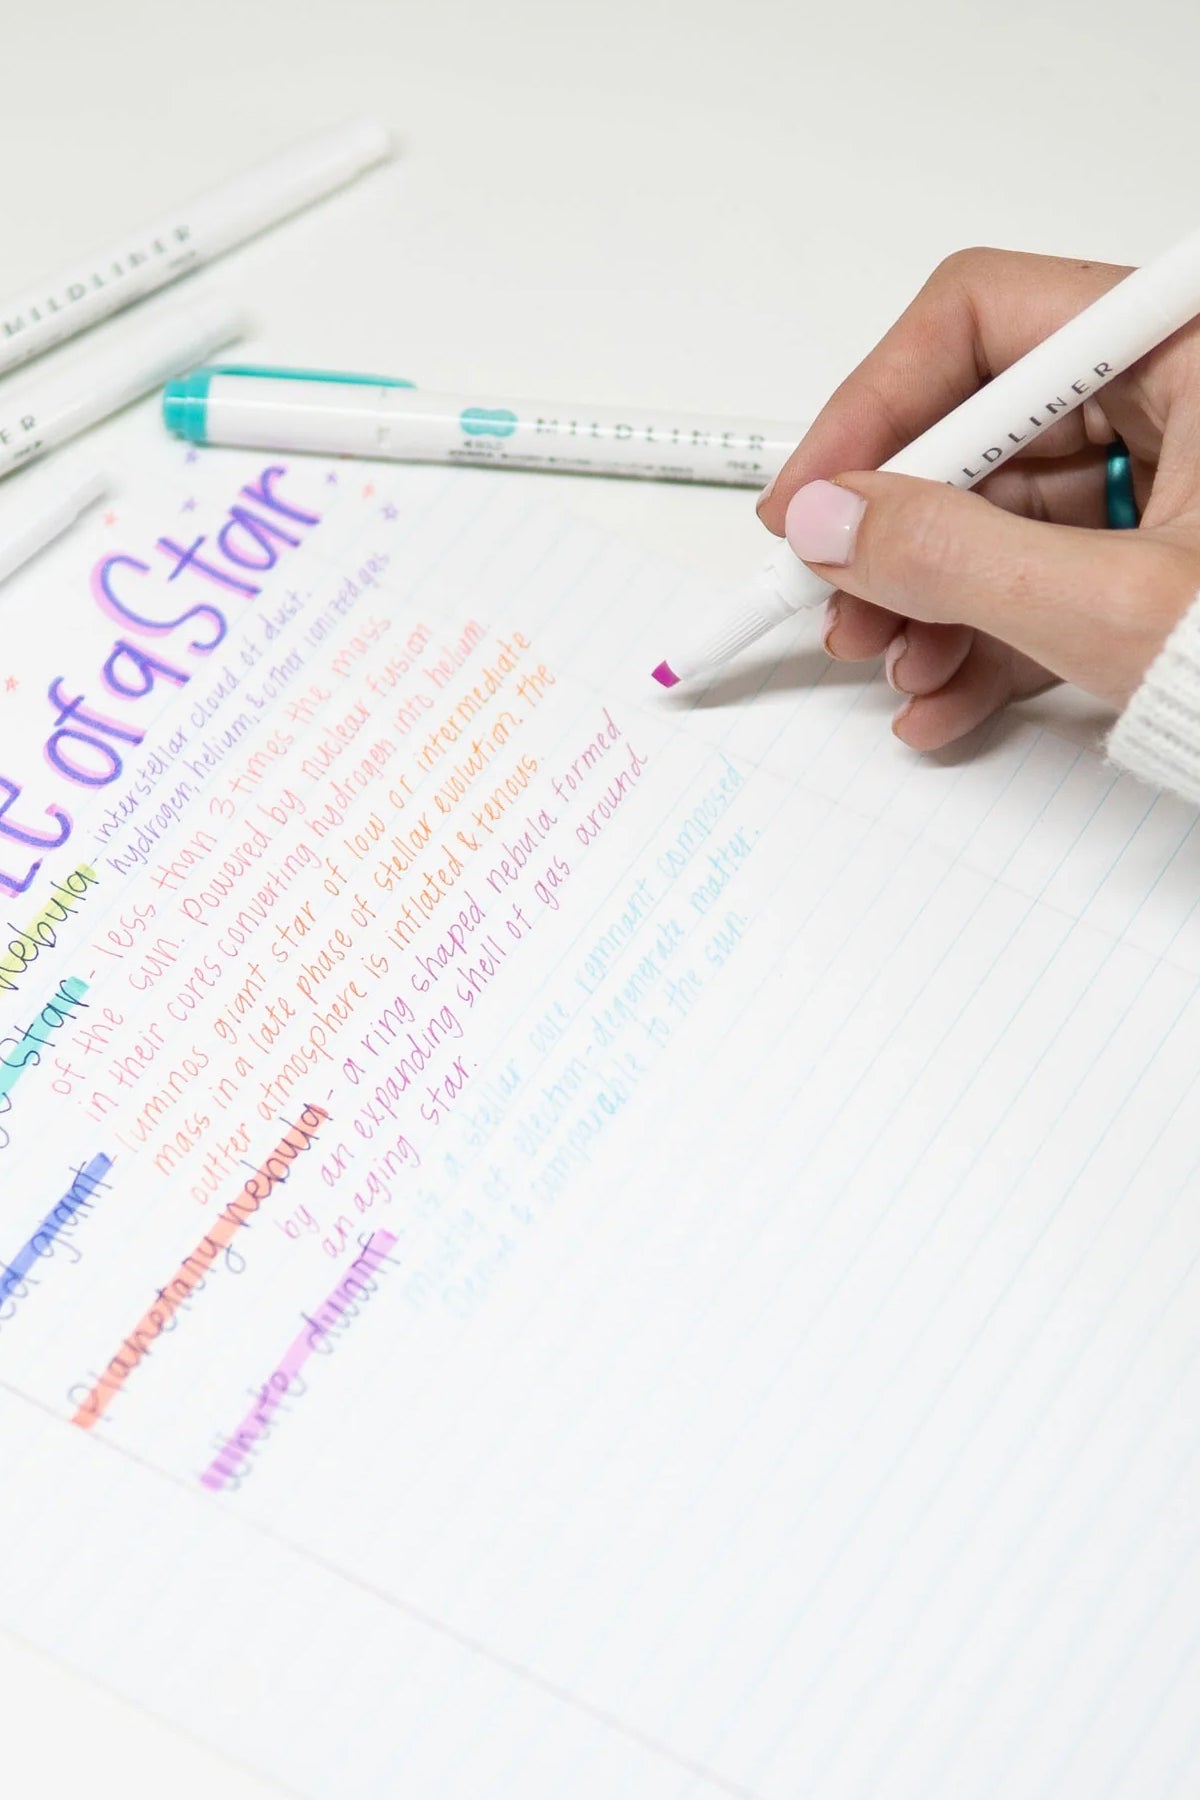 MILDLINER
ER
MILDLINER
ILDLINER
of a Star
nebula - interstellar cloud of dust.
hydrogen, helium, & other ionized gas
Star - less than 3 times the mass
of the sun. Powered by nuclear fusion
in their cores converting hydrogen into helium.
ed giant - luminos giant star of low or intermediate
mass in a late phase of stellar evolution. the
outter atmosphere is inflated & tenous.
Planetary nebula - a ring shaped nebula formed
by an expanding shell of gas around
an aging star.
White dwarf - is a stellar core remnant composed
mostly of electron-degenerate matter.
Dense & comparable to the sun.